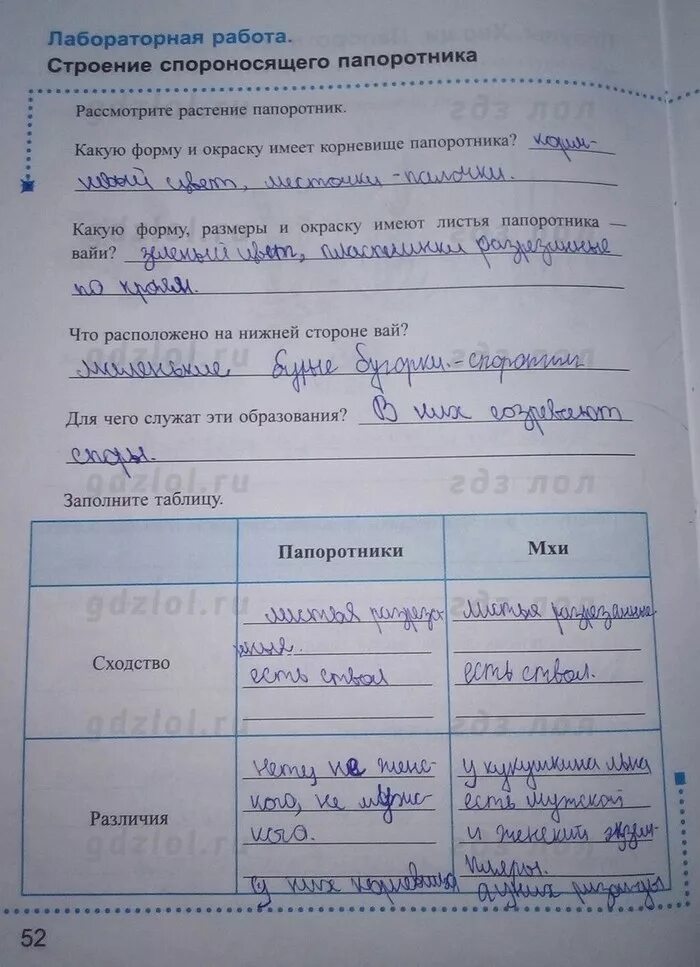 Лабораторная работа.
Строение спороносящего папоротника
Рассмотрите растение папоротник.
Какую форму и окраску имеет корневище папоротника? корич-
невый цвет, листочки - палочки.
Какую форму, размеры и окраску имеют листья папоротника —
вайи? зеленый цвет, пластинки разрезанные
по краям.
Что расположено на нижней стороне вай?
маленькие бурые бугорки - спорангии
Для чего служат эти образования? В них созревают
споры.
gdzlol.ru
Заполните таблицу.
Папоротники
Мхи
Сходство
листья разреза
нные.
есть ствол
листья разрезанные
есть ствол.
Различия
нету не женс-
кого, не мужс-
кого.
У них корневища
у кукушкина льна
есть мужской
и женский экзем-
пляры.
а у них ризоиды
52